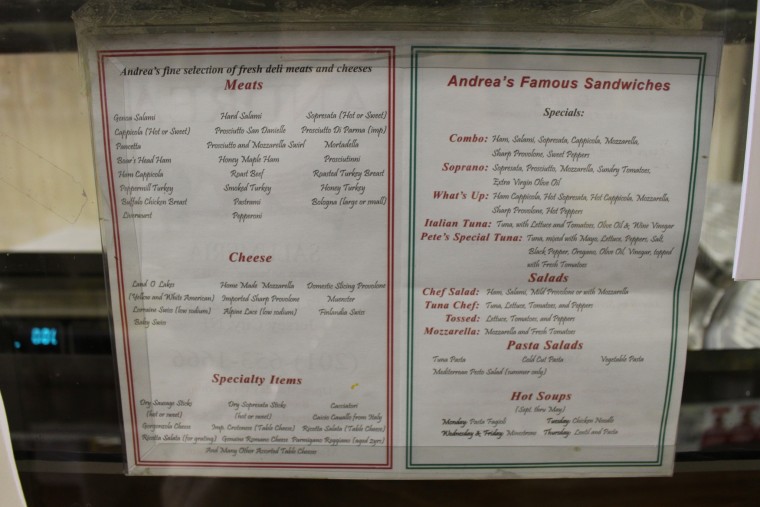 Andrea's fine selection of fresh deli meats and cheeses
Meats
Genoa Salami Hard Salami Sopresata (Hot or Sweet)
Cappicola (Hot or Sweet) Prosciutto San Danielle Prosciutto Di Parma (imp)
Pancetta Prosciutto and Mozzarella Swirl Mortadella
Boar's Head Ham Honey Maple Ham Prosciuttini
Ham Cappicola Roast Beef Roasted Turkey Breast
Peppermill Turkey Smoked Turkey Honey Turkey
Buffalo Chicken Breast Pastrami Bologna (large or small)
Liverwurst Pepperoni
Cheese
Land O Lakes Home Made Mozzarella Domestic Slicing Provolone
(Yellow and White American) Imported Sharp Provolone Munster
Lorraine Swiss (low sodium) Alpine Lace (low sodium) Finlandia Swiss
Baby Swiss
Specialty Items
Dry Sausage Sticks Dry Sopresata Sticks Cacciatori
(hot or sweet) (hot or sweet) Cacio Cavallo from Italy
Gorgonzola Cheese Imp. Crotonese (Table Cheese) Ricotta Salata (Table Cheese)
Ricotta Salata (for grating) Genuine Romano Cheese Parmigiano Reggiano (aged 2yrs)
And Many Other Assorted Table Cheeses
Andrea's Famous Sandwiches
Specials:
Combo: Ham, Salami, Sopresata, Cappicola, Mozzarella,
Sharp Provolone, Sweet Peppers
Soprano: Sopresata, Prosciutto, Mozzarella, Sundry Tomatoes,
Extra Virgin Olive Oil
What's Up: Ham Cappicola, Hot Sopresata, Hot Cappicola, Mozzarella,
Sharp Provolone, Hot Peppers
Italian Tuna: Tuna, with Lettuce and Tomatoes, Olive Oil & Wine Vinegar
Pete's Special Tuna: Tuna, mixed with Mayo, Lettuce, Peppers, Salt,
Black Pepper, Oregano, Olive Oil, Vinegar, topped
with Fresh Tomatoes
Salads
Chef Salad: Ham, Salami, Mild Provolone or with Mozzarella
Tuna Chef: Tuna, Lettuce, Tomatoes, and Peppers
Tossed: Lettuce, Tomatoes, and Peppers
Mozzarella: Mozzarella and Fresh Tomatoes
Pasta Salads
Tuna Pasta Cold Cut Pasta Vegetable Pasta
Mediterran Pasta Salad (summer only)
Hot Soups
(Sept. thru May)
Monday: Pasta Fagioli Tuesday: Chicken Noodle
Wednesday & Friday: Minestrone Thursday: Lentil and Pasta